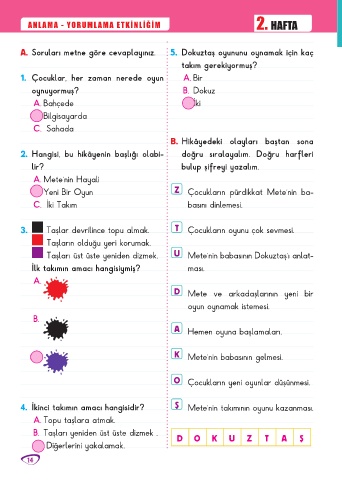 ANLAMA - YORUMLAMA ETKİNLİĞİM
2. HAFTA
A. Soruları metne göre cevaplayınız.
1. Çocuklar, her zaman nerede oyun
oynuyormuş?
A. Bahçede
Bilgisayarda
C. Sahada
2. Hangisi, bu hikâyenin başlığı olabi-
lir?
A. Mete'nin Hayali
Yeni Bir Oyun
C. İki Takım
3. Taşlar devrilince topu almak.
Taşların olduğu yeri korumak.
Taşları üst üste yeniden dizmek.
İlk takımın amacı hangisiymiş?
A.
B.
4. İkinci takımın amacı hangisidir?
A. Topu taşlara atmak.
B. Taşları yeniden üst üste dizmek .
Diğerlerini yakalamak.
14
5. Dokuztaş oyununu oynamak için kaç
takım gerekiyormuş?
A. Bir
B. Dokuz
İki
B. Hikâyedeki olayları baştan sona
doğru sıralayalım. Doğru harfleri
bulup şifreyi yazalım.
Z Çocukların pürdikkat Mete'nin ba-
basını dinlemesi.
T Çocukların oyunu çok sevmesi.
U Mete'nin babasının Dokuztaş'ı anlat-
ması.
D Mete ve arkadaşlarının yeni bir
oyun oynamak istemesi.
A Hemen oyuna başlamaları.
K Mete'nin babasının gelmesi.
O Çocukların yeni oyunlar düşünmesi.
Ş Mete'nin takımının oyunu kazanması.
D O K U Z T A Ş